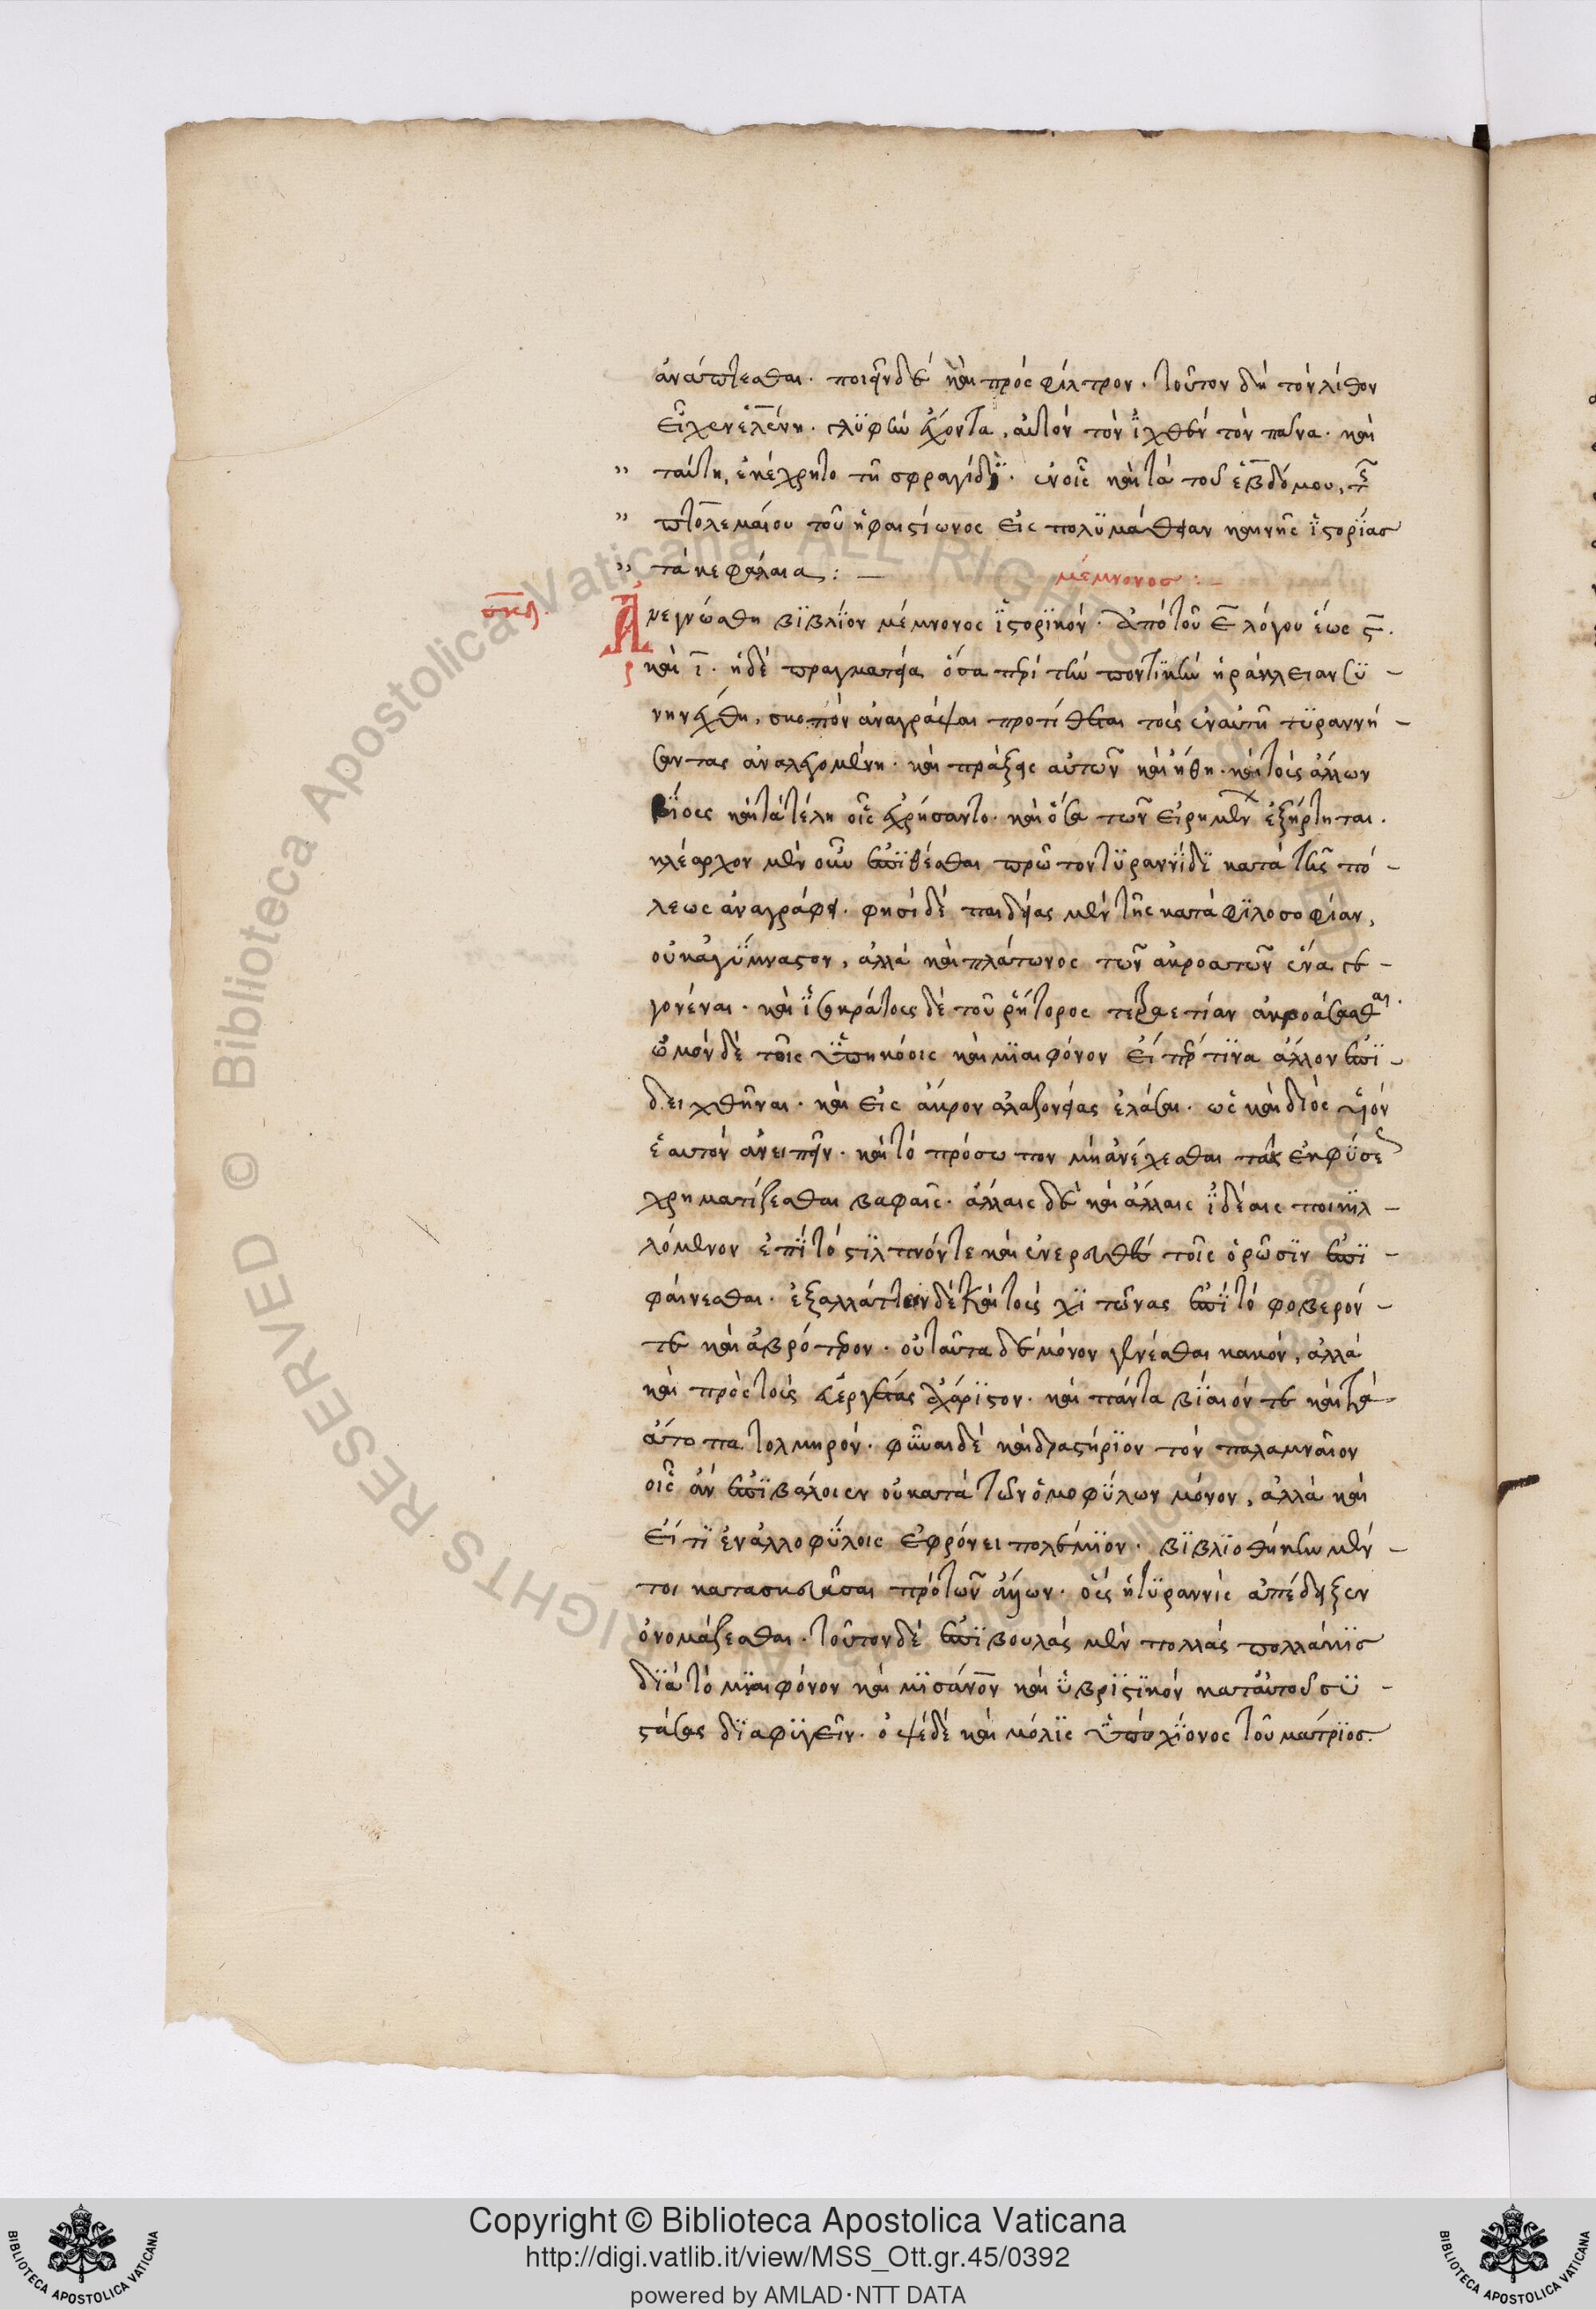 ἀνάπτεσθαι. ποιεῖν δὲ καὶ πρὸς φίλτρον. τοῦτον δὴ τὸν λίθον
εἶχεν ἑλένη. γλυφὴν ἔχοντα, αὐτὸν τὸν ἰχθὺν τὸν πᾶνα. καὶ
" ταύτη, ἐκέχρητο τῆ σφραγίδϊ. ἐν οἷς καὶ τὰ τοῦ ἑβδόμου, τῆς
" πτολεμαίου τοῦ ἡφαιστίωνος εἰς πολϋμάθειαν καινῆς ἱστορίας
" τὰ κεφάλαια : —
μέμνονος : –
σκδ.
Ἀνεγνώσθη βϊβλίον μέμνονος ἱστορϊκόν. ἀπὸ τοῦ θ λόγου ἕως ϛ.
καὶ ι. ἡ δὲ πραγματεία ὅσα περὶ τὴν ποντϊκὴν ἡράκλειαν συ –
νηνέχθη, σκοπὸν ἀναγράψαι προτίθεται τοὺς ἐν αὐτῆ τϋραννή –
σαντας ἀναλεγομένη. καὶ πράξεις αὐτῶν καὶ ἤθη. καὶ τοὺς ἄλλων
βίους καὶ τὰ τέλη οἷς ἐχρήσαντο. καὶ ὅσα τῶν εἰρημένων ἐξήρτηται.
κλέαρχον μὲν οὖν ἐπϊθέσθαι πρῶτον τϋραννίδϊ κατὰ τῆς πό –
λεως ἀναγράφει. φησὶ δὲ παιδείας μὲν τῆς κατὰ φϊλοσοφίαν,
οὐκ ἀγύμναστον, ἀλλὰ καὶ πλάτωνος τῶν ἀκροατῶν ἕνα γε –
γονέναι. καὶ ἰσοκράτους δὲ τοῦ ῥήτορος τετραετίαν ἀκροάσασθαι.
ὠμὸν δὲ τοῖς ὑπηκόοις καὶ μϊαιφόνον εἴπερ τϊνα ἄλλον ἐπϊ –
δειχθῆναι. καὶ εἰς ἄκρον ἀλαζονείας ἐλάσαι. ὡς καὶ διὸς υἱὸν
ἑαυτὸν ἀνειπεῖν. καὶ τὸ πρόσωπον μὴ ἀνέχεσθαι ταῖς ἐκ φύσεως
χρηματίζεσθαι βαφαῖς. ἄλλαις δὲ καὶ ἄλλαις ἰδέαις ποικϊλ –
λόμενον ἐπὶ τὸ στϊλπνόν τε καὶ ἐνερευθὲς τοῖς ὁρῶσϊν ἐπϊ –
φαίνεσθαι. ἐξαλλάττειν δὲ καὶ τοὺς χϊτῶνας ἐπὶ τὸ φοβερόν –
τε καὶ ἁβρότερον. οὐ ταῦτα δὲ μόνον γενέσθαι κακόν, ἀλλὰ
καὶ πρὸς τοὺς εὐεργέτας ἀχάριστον. καὶ πάντα βίαιόν τε καὶ τὰ
ἄτοπα τολμηρόν. φῦναι δὲ καὶ δραστήριον τὸν παλαμναῖον
οἷς ἂν ἐπϊβάλοιεν οὐ κατὰ τῶν ὁμοφύλων μόνον, ἀλλὰ καὶ
εἴ τϊ ἐν ἀλλοφύλοις ἐφρόνει πολέμϊον. βϊβλϊοθήκην μέν –
τοι κατασκευάσαι πρὸ τῶν ἄλλων. οὓς ἡ τϋραννὶς ἀπέδειξεν
ὀνομάζεσθαι. τοῦτον δὲ ἐπϊβουλὰς μὲν πολλὰς πολλάκϊς
δϊὰ τὸ μϊαιφόνον καὶ μϊσάνον καὶ ὑβρϊστϊκὸν κατ αὐτοῦ συ –
στάσας δϊαφϋγεῖν. ὀψὲ δὲ καὶ μόλϊς ὑπὸ χίονος τοῦ μάτρϊος.
Copyright © Biblioteca Apostolica Vaticana
http://digi.vatlib.it/view/MSS_Ott.gr.45/0392
powered by AMLAD·NTT DATA